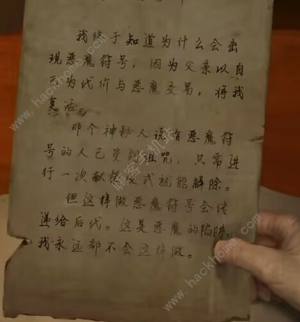 我终于知道为什么会出
现恶魔符号，因为父亲以自
己为代价与恶魔交易，将我
复活
那个神秘人说有恶魔符
号的人已受到诅咒，只需进
行一次献祭仪式就能解除。
但这样做恶魔符号会传
递给后代。这是恶魔的陷阱，
我永远都不会这样做。